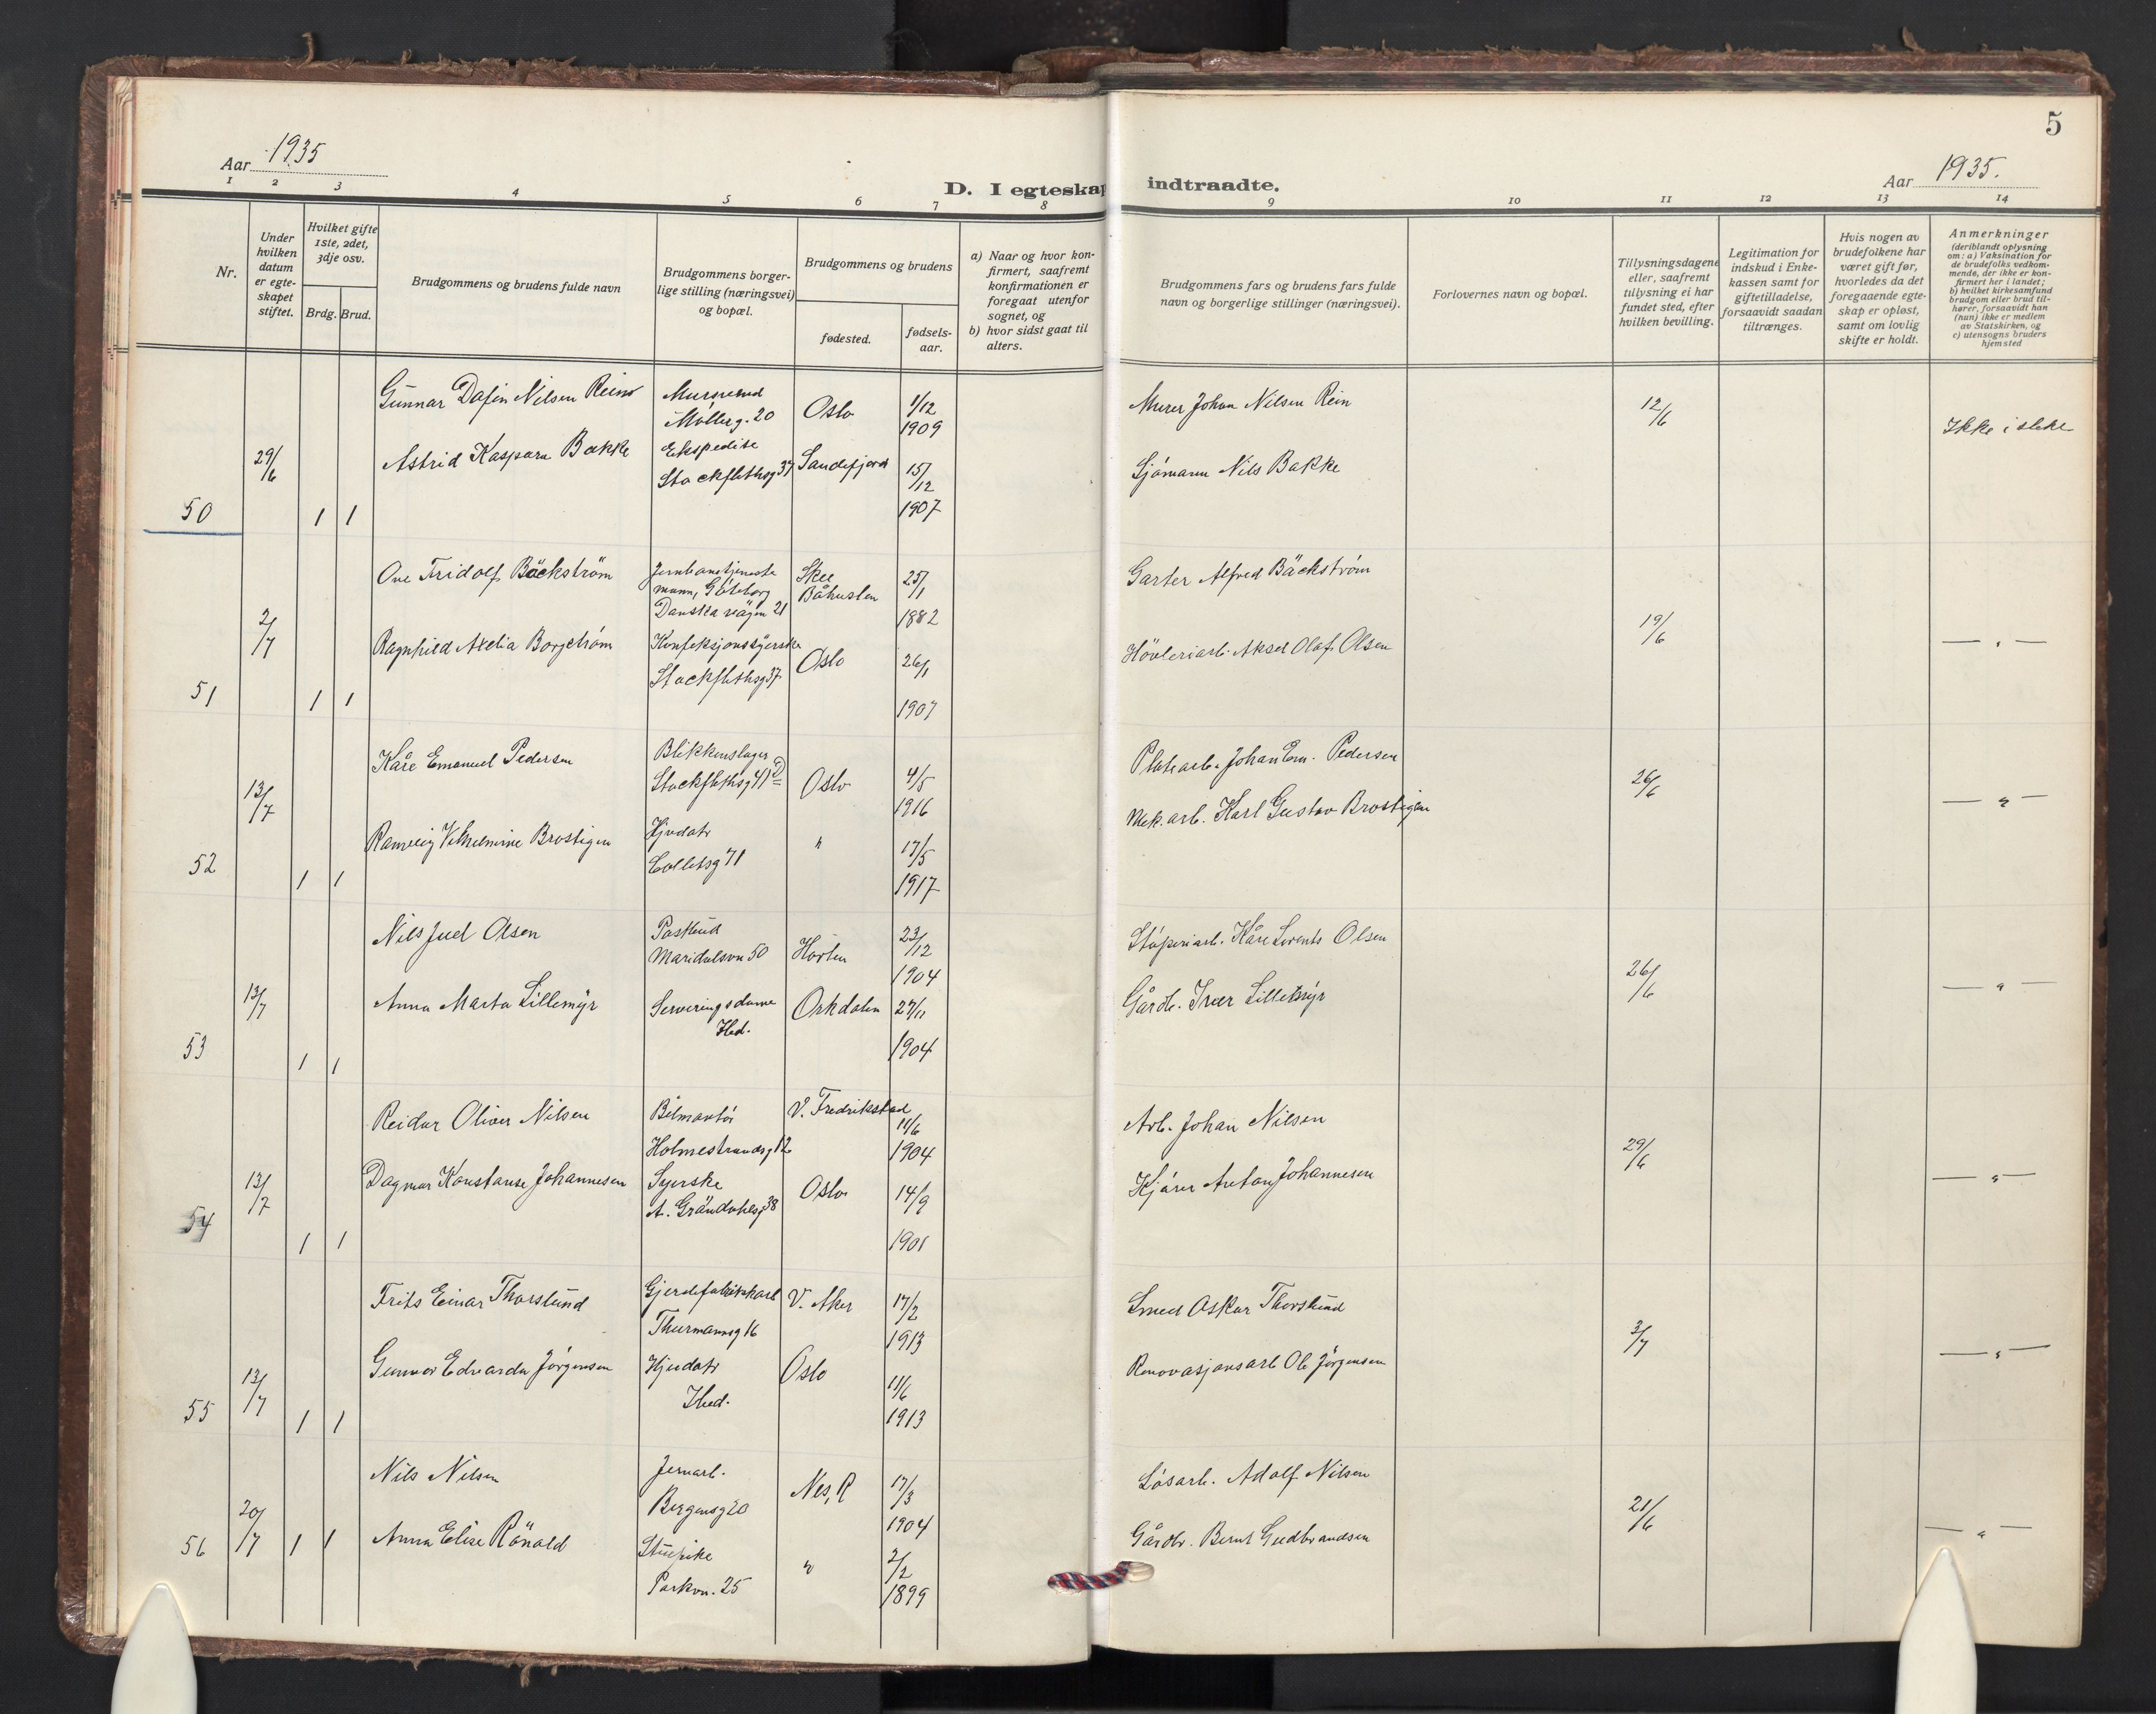 5
Aar 1935
D. I egteskap indtraadte.
Aar 1935.
1 2 3 4 5 6 7 8 9 10 11 12 13 14
Nr.
Under hvilken datum er egteskapet stiftet.
Hvilket gifte 1ste, 2det, 3dje osv.
Brdg. Brud.
Brudgommens og brudens fulde navn
Brudgommens borgerlige stilling (næringsvei) og bopæl.
Brudgommens og brudens
fødested.
fødselsaar.
a) Naar og hvor konfirmert, saafremt konfirmationen er foregaat utenfor sognet, og
b) hvor sidst gaat til alters.
Brudgommens fars og brudens fars fulde navn og borgerlige stillinger (næringsvei).
Forlovernes navn og bopæl.
Tillysningsdagene eller, saafremt tillysning ei har fundet sted, efter hvilken bevilling.
Legitimation for indskud i Enkekassen samt for giftetilladelse, forsaavidt saadan tiltrænges.
Hvis nogen av brudefolkene har været gift før, hvorledes da det foregaaende egteskap er opløst, samt om lovlig skifte er holdt.
Anmerkninger (deriblandt oplysning om: a) Vaksination for de brudefolks vedkommende, der ikke er konfirmert her i landet; b) hvilket kirkesamfund brudgom eller brud tilhører, forsaavidt han (hun) ikke er medlem av Statskirken, og c) utensogns bruders hjemsted
50 29/6 1 1
Gunnar Dafin Nilsen Rein
Møllerg. 20
Oslo 1/12 1909
Murer Johan Nilsen Rein
12/6
Ikke i slekt
Astrid Kaspara Bakke
Ekspeditr
Stockflethsg 37
Sandefjord 15/12 1907
Sjømann Nils Bakke
51 2/7 1 1
Ove Fridolf Bäckström
Jernbanetjenestemann, Göteborg
Danska vägen 21
Skee Båhuslen 25/1 1882
Garter Alfred Bäckström
19/6
— " —
Ragnhild Axelia Borgström
Konfeksjonssyerske
Stockflethsg 37
Oslo 26/1 1907
Høvleriarb. Aksel Olaf Olsen
52 13/7 1 1
Kåre Emanuel Pedersen
Blikkenslager
Stockflethsg 41 D
Oslo 4/5 1916
Platearb. Johan Em. Pedersen
26/6
— " —
Ranveig Vilhelmine Brostigen
Hjvdatr
Colletsg 71
" 17/5 1917
Mek. arb. Karl Gustav Brostigen
53 13/7 1 1
Nils Juel Olsen
Postbud
Maridalsvn 50
Horten 23/12 1904
Støperiarb. Kåre Lorents Olsen
26/6
— " —
Anna Marta Lillemyr
Serveringsdame
Ibid.
Orkdalen 27/11 1904
Gårdb. Iver Lillemyr
54 13/7 1 1
Reidar Oliver Nilsen
Bilmontør
Holmestrandsg 12
V. Fredrikstad 11/6 1904
Arb. Johan Nilsen
29/6
— " —
Dagmar Konstanse Johannesen
Syerske
A. Grøndahlsg 38
Oslo 14/9 1901
Kjører Anton Johannesen
55 13/7 1 1
Frits Einar Thorslund
Gjerdefabrikkarb
Thurmannsg 16
V. Aker 17/2 1913
Smed Oskar Thorslund
3/7
— " —
Gunvor Edvarda Jørgensen
Hjvdatr
Ibid.
Oslo 11/6 1913
Renovasjonsarb Ole Jørgensen
56 20/7 1 1
Nils Nilsen
Jernarb.
Bergensg 20
Nes, R 17/3 1904
Løsarb. Adolf Nilsen
21/6
— " —
Anna Elise Rönald
Stuepike
Parkvn. 25
" 2/2 1899
Gårdbr. Bernt Gudbrandsen